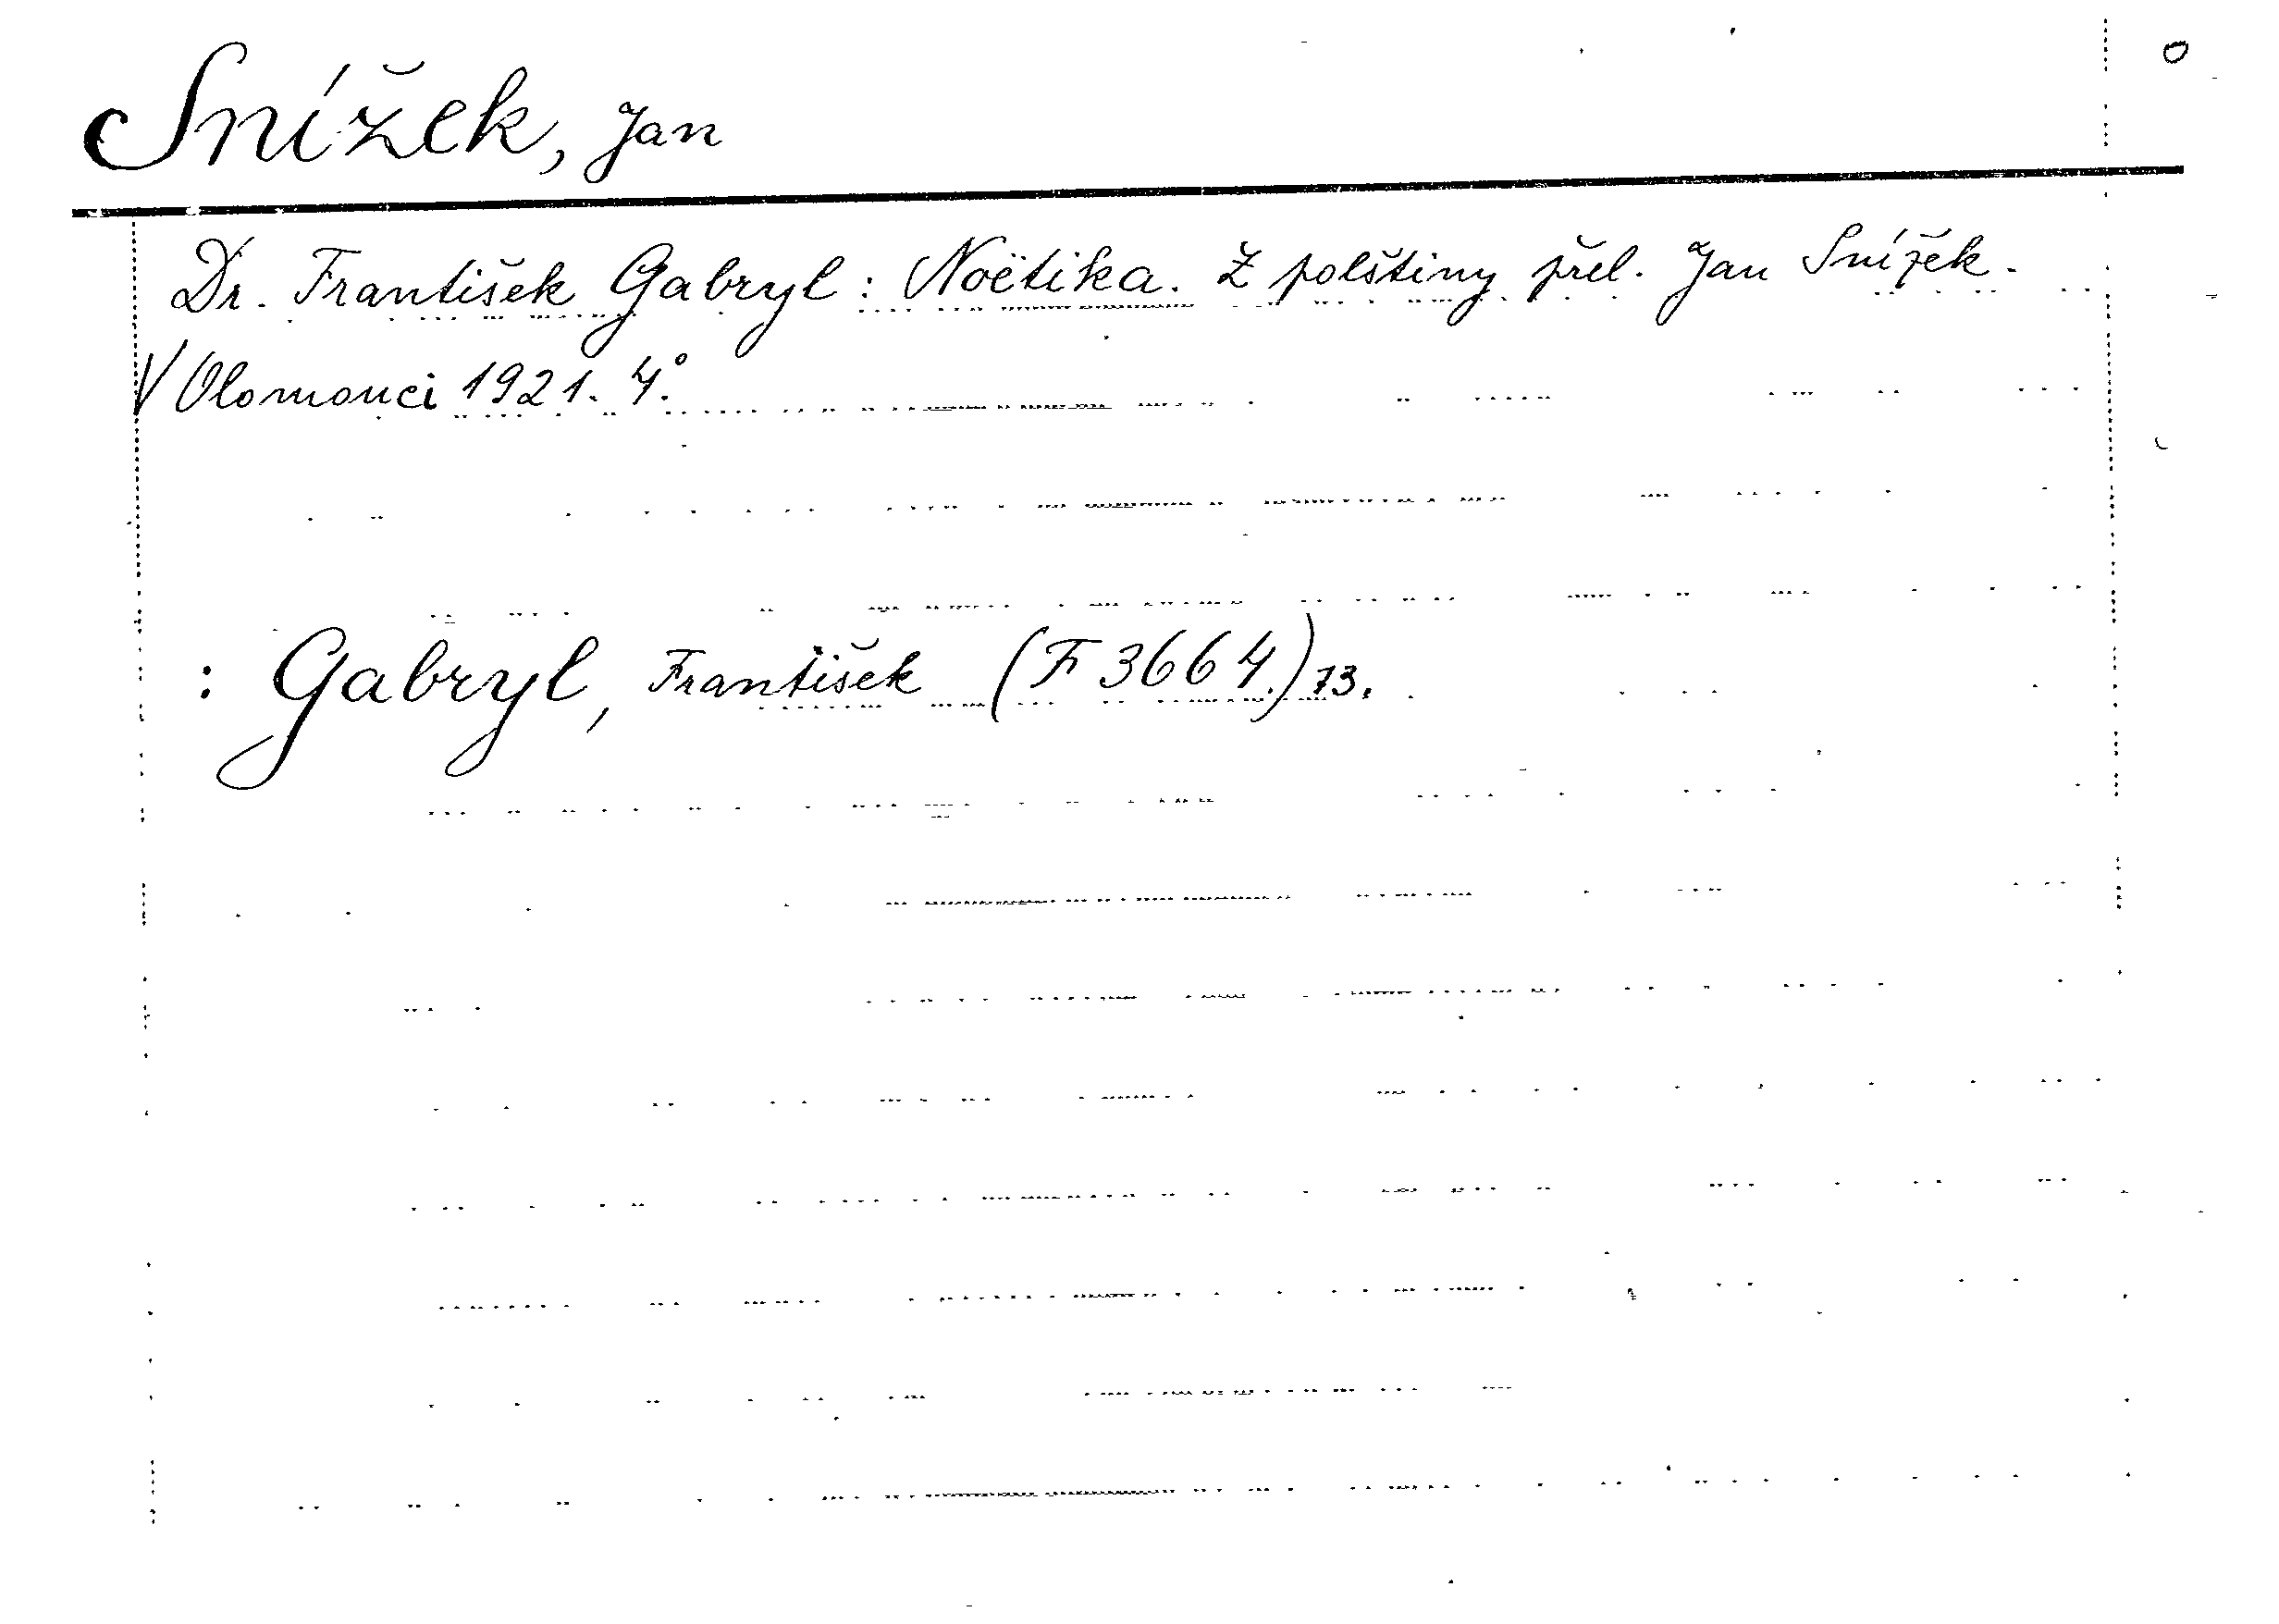 Snížek, Jan
Dr. František Gabryl: Noëtika. Z polštiny přel. Jan Snížek.
V Olomouci 1921. 4°.
: Gabryl, František (F 3664.) 73.